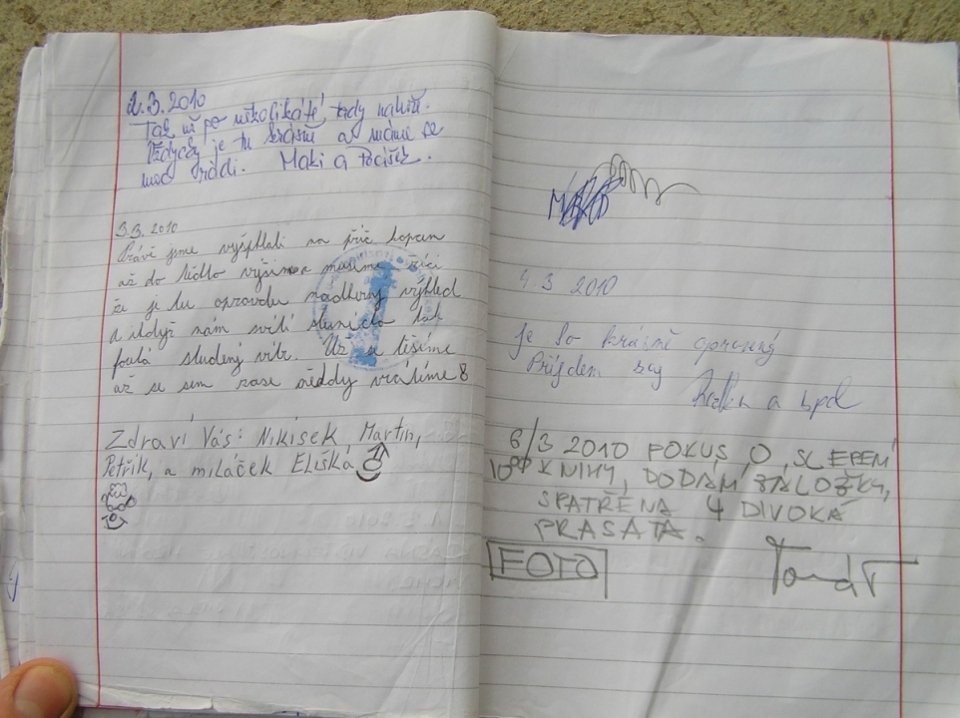 2.3.2010
Tak už po několikáté tady nahoře.
Vždycky je tu krásně a máme se
moc rádi. Maki a Pacišek.
3.3.2010
Právě jsme vyšplhali na příč kopcem
až do tidlo výšin a musíme říci
že je tu opravdu nadherný výhled
a ikdyž nám svítí slunićko tak
fouká studený vítr. Už se těšíme
až se sem zase něddy vrátíme 8
Zdraví Vás: Nikisek, Martin,
Petřík, a miláček Eliška
4.3 2010
Je to krásně opravený
Přijdem zas
a spol
6/3 2010 POKUS O SLEPENÍ
10 KNIHY, DODÁM ZÁLOŽKY,
SPATŘENA 4 DIVOKÁ
PRASATA.
FOTO